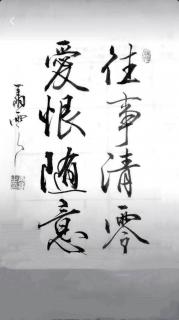 往事清零
愛恨随意